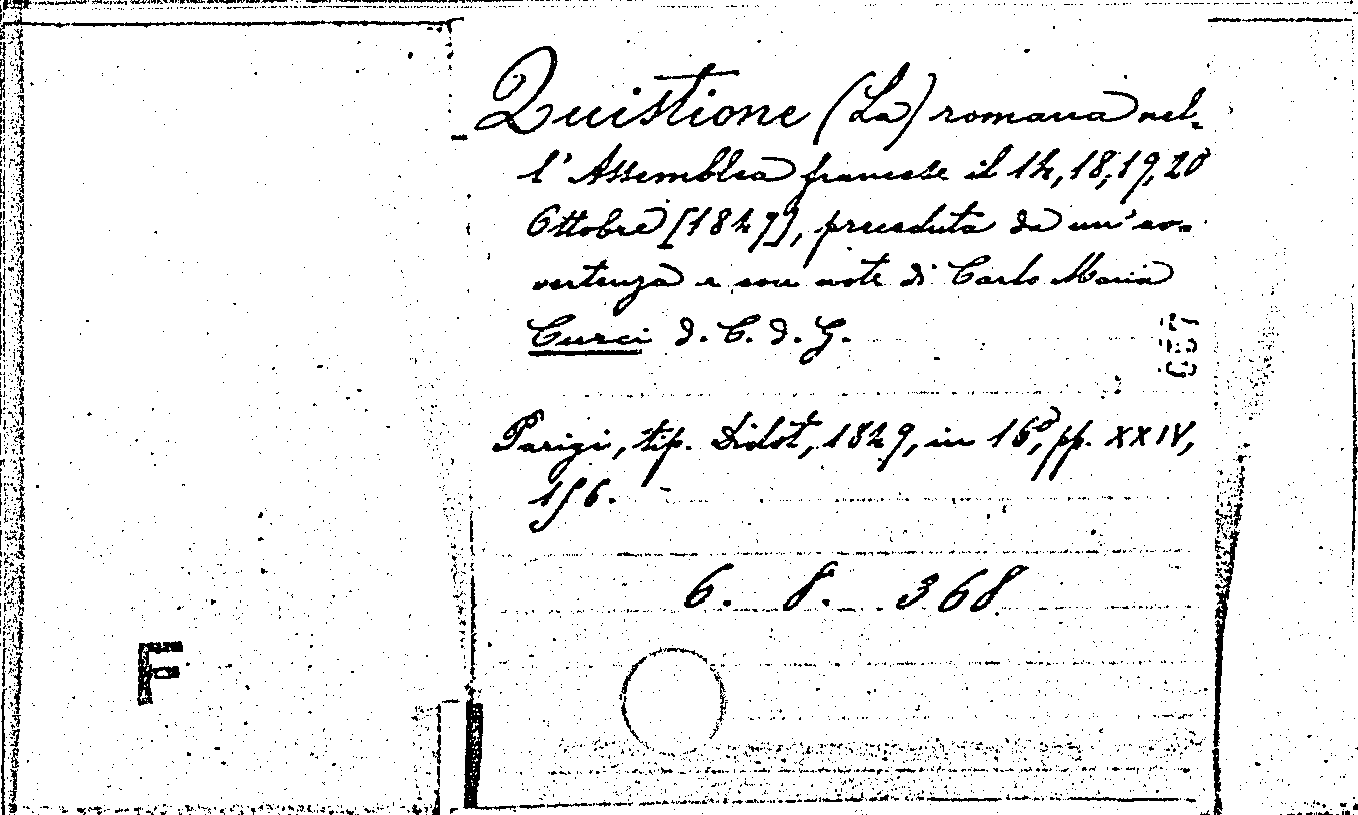 Quistione (La) romana nel-
l'Assemblea francese il 14, 18, 19, 20
Ottobre [1849], preceduta da un'av-
vertenza e con note di Carlo Maria
Curci d. C. d. G.
Parigi, tip. Didot, 1849, in 16°, pp. XXIV,
156.
6. 8. 368
F